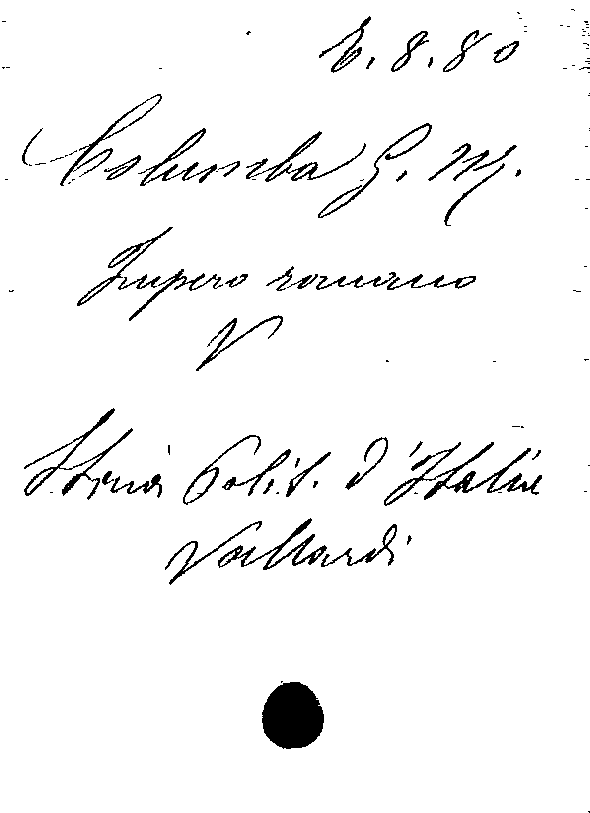 E. 8. 80
Columba G. M.
Impero romano
V
Storia Polit. d'Italia
Vallardi